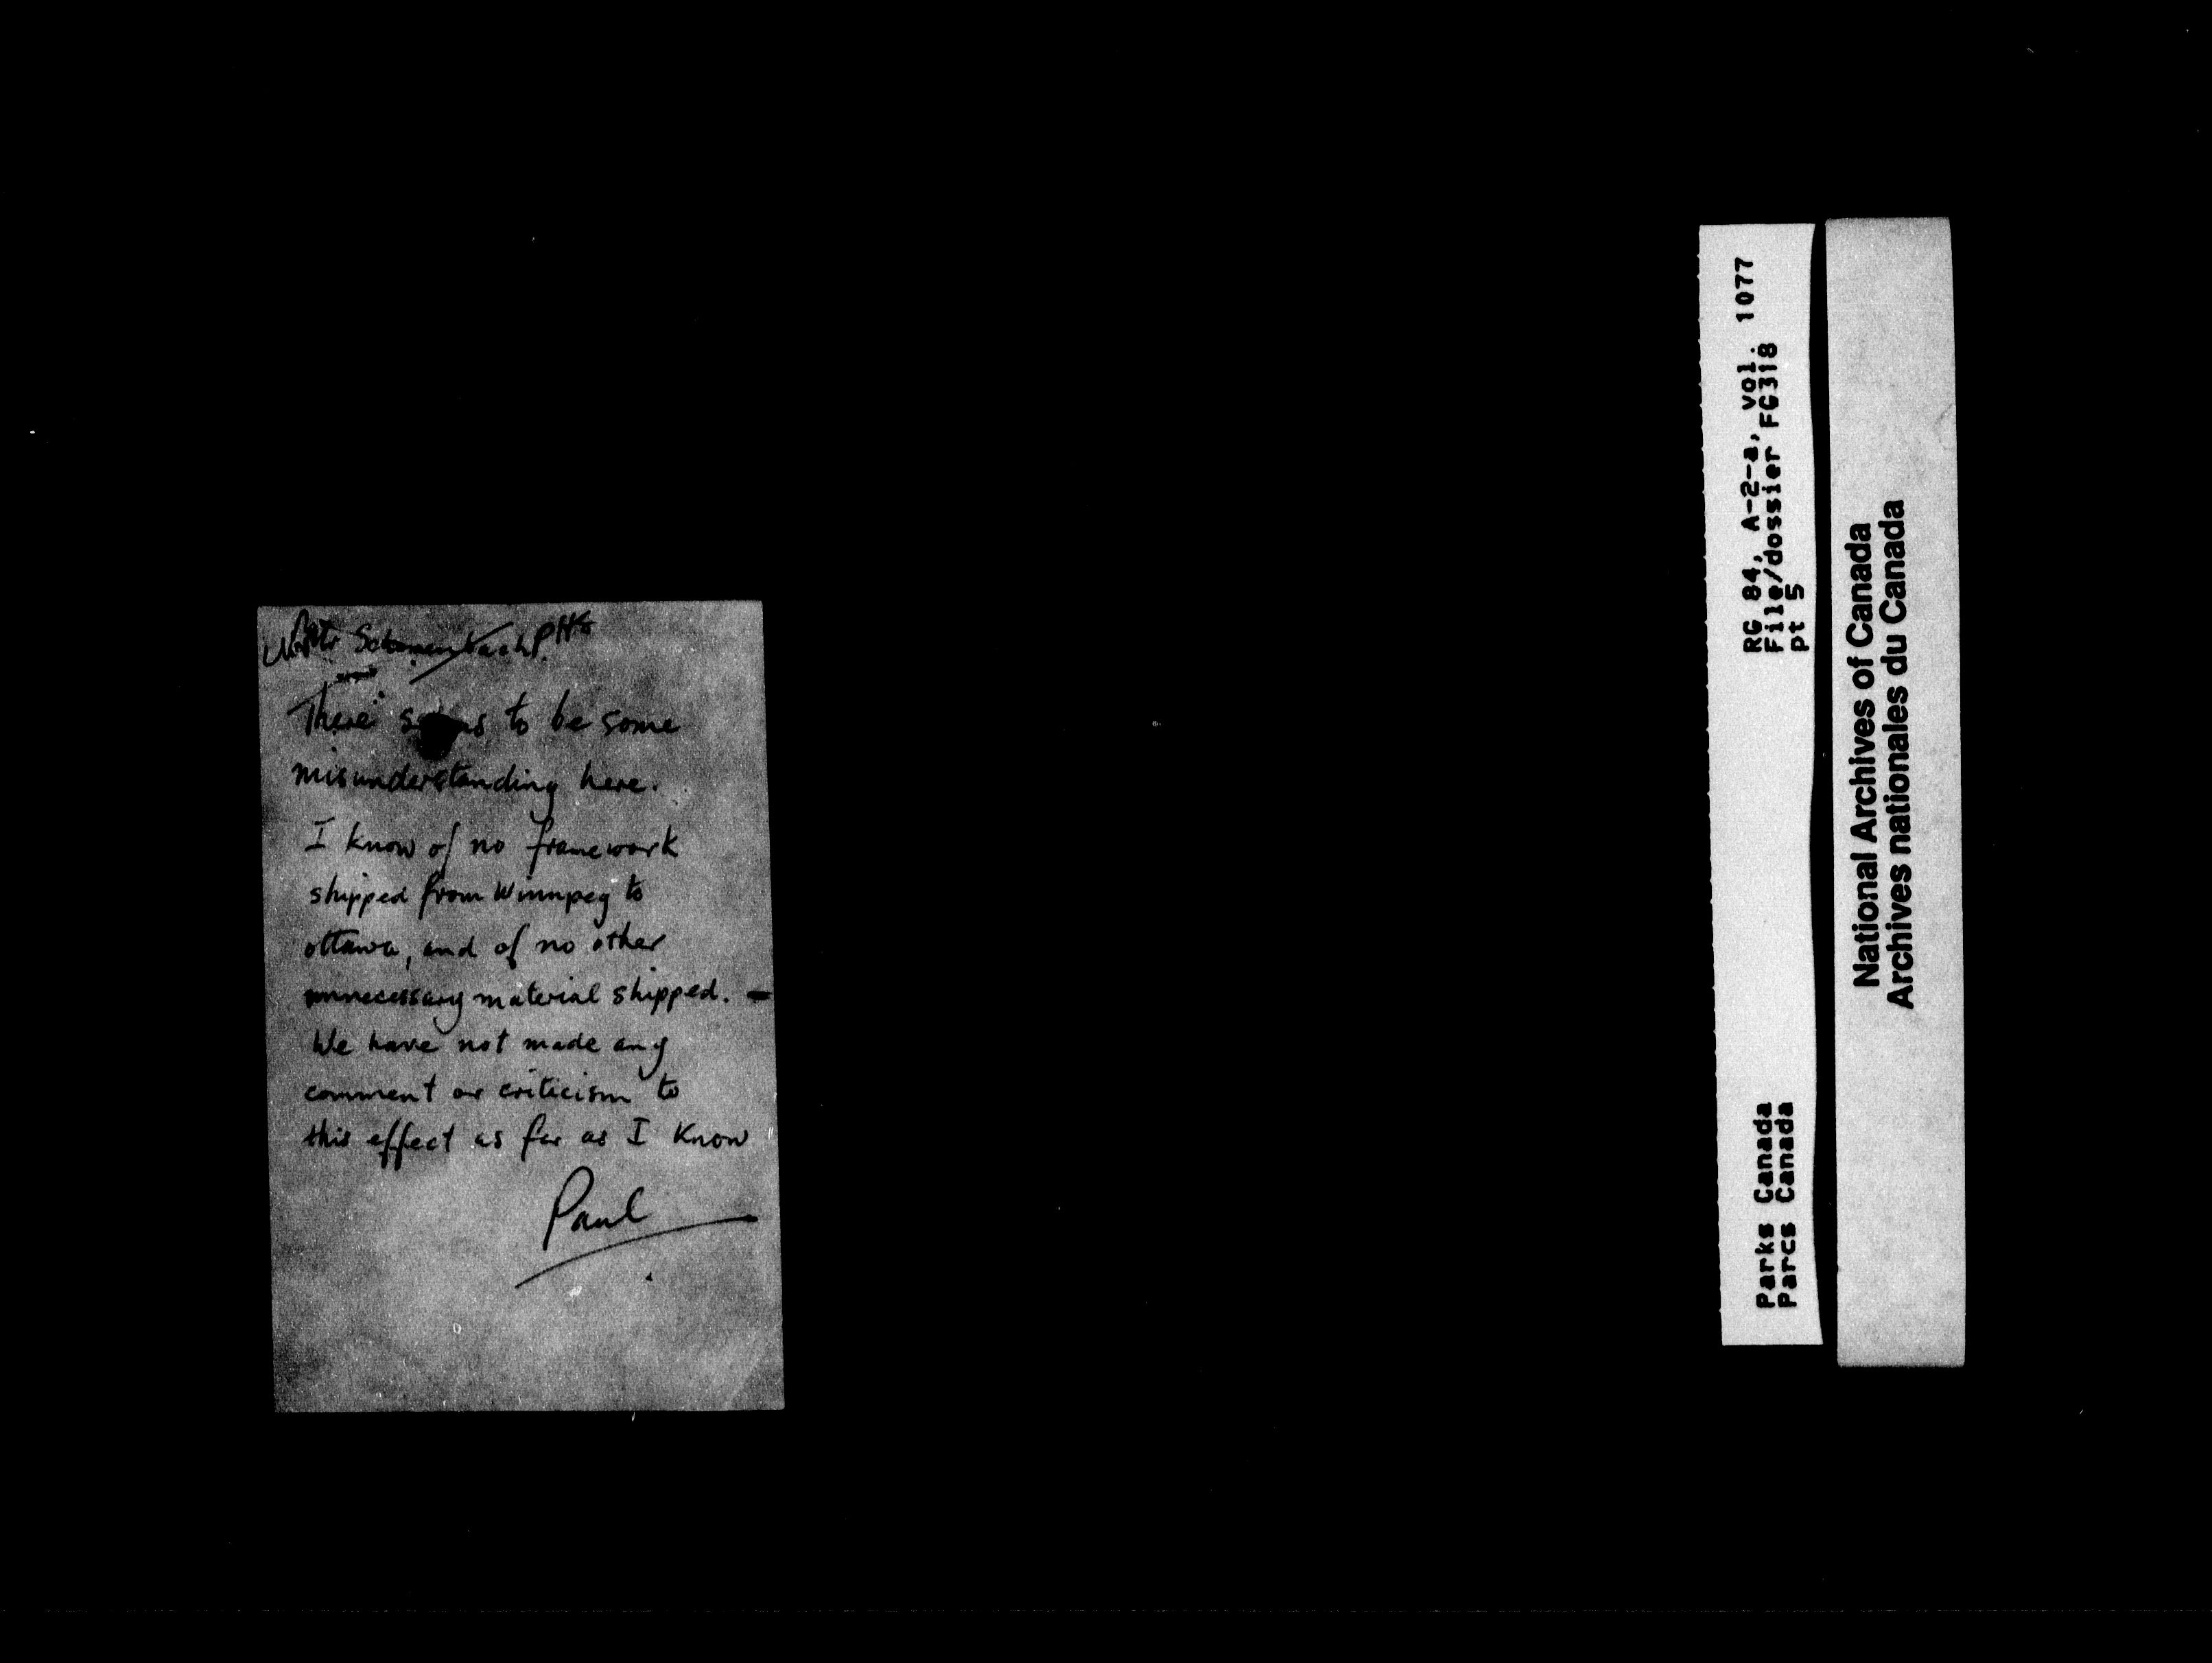 There seems to be some
misunderstanding here.
I know of no framework
shipped from Winnipeg to
ottawa, and of no other
unnecessary material shipped. -
We have not made any
comment or criticism to
this effect as far as I know
Paul
RG 84, A-2-a, vol. 1077
File/dossier FG318
pt 5
Parks Canada
Parcs Canada
National Archives of Canada
Archives nationales du Canada